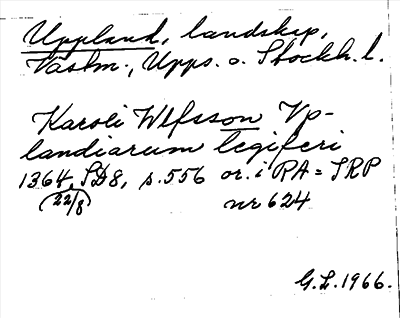 Uppland, landskap,
Västm., Upps. o. Stockh. l.
Karoli Wlfsson Vp-
landiarum legiferi
1364, SD8, s. 556 or. i RA = SRP
(22/8) nr 624
G.L. 1966.